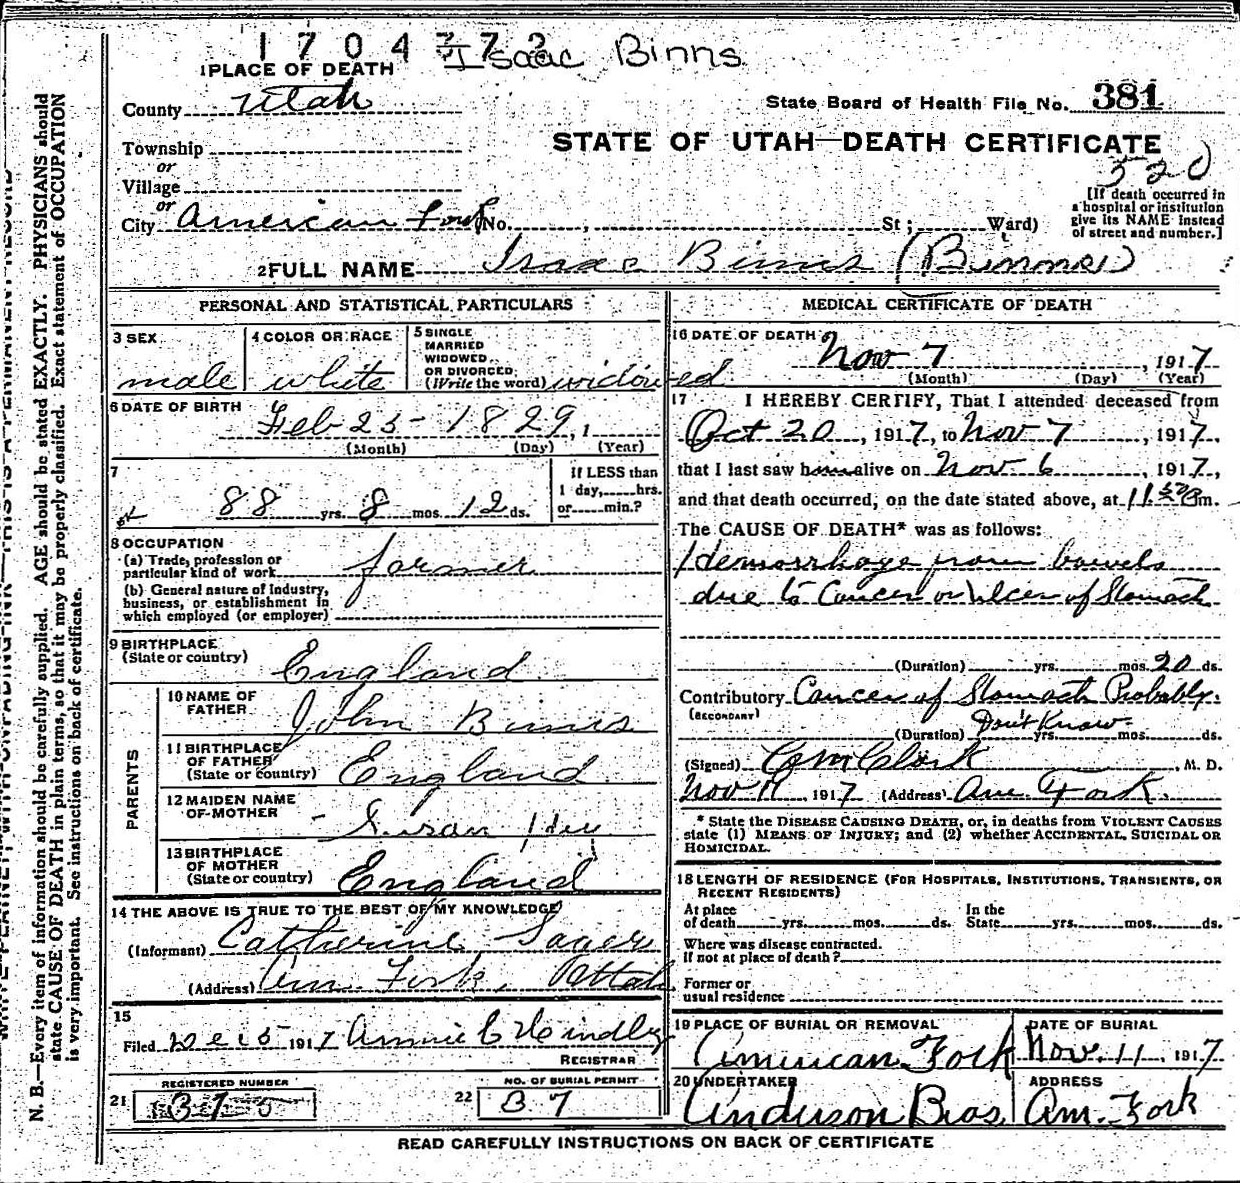 1704372 Isaac Binns
1 PLACE OF DEATH
County Utah
State Board of Health File No. 381
STATE OF UTAH—DEATH CERTIFICATE
520
Township
or
Village
or
City American Fork No. , St ; Ward)
[If death occurred in
a hospital or institution
give its NAME instead
of street and number.]
2 FULL NAME Isaac Binns (Binns)
PERSONAL AND STATISTICAL PARTICULARS
3 SEX
male
4 COLOR OR RACE
white
5 SINGLE
MARRIED
WIDOWED
OR DIVORCED
(Write the word) widowed
6 DATE OF BIRTH
Feb 25 - 1829, 1
(Month) (Day) (Year)
7
88 yrs. 8 mos. 12 ds.
If LESS than
1 day, hrs.
or min.?
8 OCCUPATION
(a) Trade, profession or
particular kind of work farmer
(b) General nature of industry,
business, or establishment in
which employed (or employer)
9 BIRTHPLACE
(State or country) England
PARENTS
10 NAME OF
FATHER John Binns
11 BIRTHPLACE
OF FATHER
(State or country) England
12 MAIDEN NAME
OF MOTHER Susan
13 BIRTHPLACE
OF MOTHER
(State or country) England
14 THE ABOVE IS TRUE TO THE BEST OF MY KNOWLEDGE
(Informant) Catherine
(Address) Am. Fork, Utah
15
Filed Dec 5 1917 Annie C Hindley
REGISTRAR
REGISTERED NUMBER
21 375
NO. OF BURIAL PERMIT
22 37
MEDICAL CERTIFICATE OF DEATH
16 DATE OF DEATH
Nov 7, 1917
(Month) (Day) (Year)
17 I HEREBY CERTIFY, That I attended deceased from
Oct 20, 1917, to Nov 7, 1917,
that I last saw him alive on Nov 6, 1917,
and that death occurred, on the date stated above, at 11 m.
The CAUSE OF DEATH* was as follows:
Hemorrhage from bowels
due to Cancer or Ulcer of Stomach
(Duration) yrs. mos. 20 ds.
Contributory Cancer of Stomach Probably.
(SECONDARY) Don't Know
(Duration) yrs. mos. ds.
(Signed) Clark, M. D.
Nov 11 1917 (Address) Am. Fork.
* State the DISEASE CAUSING DEATH, or, in deaths from VIOLENT CAUSES
state (1) MEANS OF INJURY; and (2) whether ACCIDENTAL, SUICIDAL OR
HOMICIDAL.
18 LENGTH OF RESIDENCE (FOR HOSPITALS, INSTITUTIONS, TRANSIENTS, OR
RECENT RESIDENTS)
At place In the
of death yrs. mos. ds. State yrs. mos. ds.
Where was disease contracted.
if not at place of death?
Former or
usual residence
19 PLACE OF BURIAL OR REMOVAL
American Fork
DATE OF BURIAL
Nov. 11, 1917
20 UNDERTAKER
Anderson Bros.
ADDRESS
Am. Fork
READ CAREFULLY INSTRUCTIONS ON BACK OF CERTIFICATE
N. B.—Every item of information should be carefully supplied. AGE should be stated EXACTLY. PHYSICIANS should
state CAUSE OF DEATH in plain terms, so that it may be properly classified. Exact statement of OCCUPATION
is very important. See instructions on back of certificate.